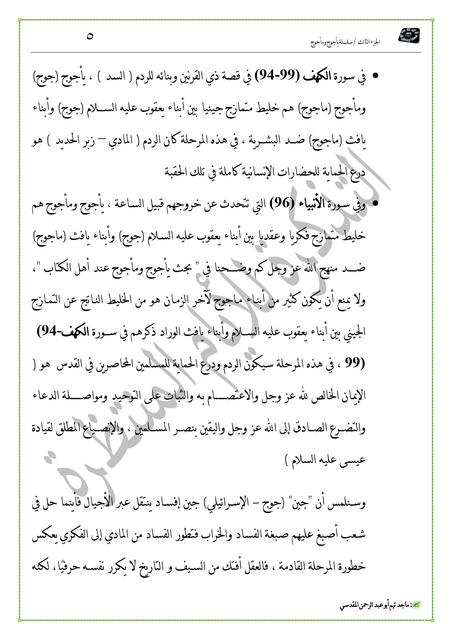 الجزء الثالث / سلسلة يأجوج ومأجوج
٥
• في سورة الكهف (99-94) في قصة ذي القرنين وبنائه للردم ( السد ) ، يأجوج (جوج)
ومأجوج (ماجوج) هم خليط متمازج جينيا بين أبناء يعقوب عليه السلام (جوج) وأبناء
يافث (ماجوج) ضد البشرية ، في هذه المرحلة كان الردم ( المادي – زبر الحديد ) هو
درع الحماية للحضارات الإنسانية كاملة في تلك الحقبة
• وفي سورة الأنبياء (96) التي تتحدث عن خروجهم قبيل الساعة ، يأجوج ومأجوج هم
خليط متمازج فكريا وعقديا بين أبناء يعقوب عليه السلام (جوج) وأبناء يافث (ماجوج)
ضد منهج الله عز وجل كم وضحنا في " بحث يأجوج ومأجوج عند أهل الكتاب "،
ولا يمنع أن يكون كثير من أبناء ماجوج لآخر الزمان هو من الخليط الناتج عن التمازج
الجيني بين أبناء يعقوب عليه السلام وأبناء يافث الوراد ذكرهم في سورة الكهف-94)
(99 ، في هذه المرحلة سيكون الردم ودرع الحماية للمسلمين المحاصرين في القدس هو (
الإيمان الخالص لله عز وجل والاعتصام به والثبات على التوحيد ومواصلة الدعاء
والتضرع الصادق إلى الله عز وجل واليقين بنصر المسلمين ، والإنصياع المطلق لقيادة
عيسى عليه السلام )
وسنلمس أن "جين" (جوج – الإسرائيلي) جين إفساد ينتقل عبر الأجيال فأينما حل في
شعب أصبغ عليهم صبغة الفساد والخراب فتطور الفساد من المادي إلى الفكري يعكس
خطورة المرحلة القادمة ، فالعقل أفتك من السيف و التاريخ لا يكرر نفسه حرفيًا، لكنه
التذكرة للأيام المنتظرة
: ماجد تيم أبو عبد الرحمن المقدسي